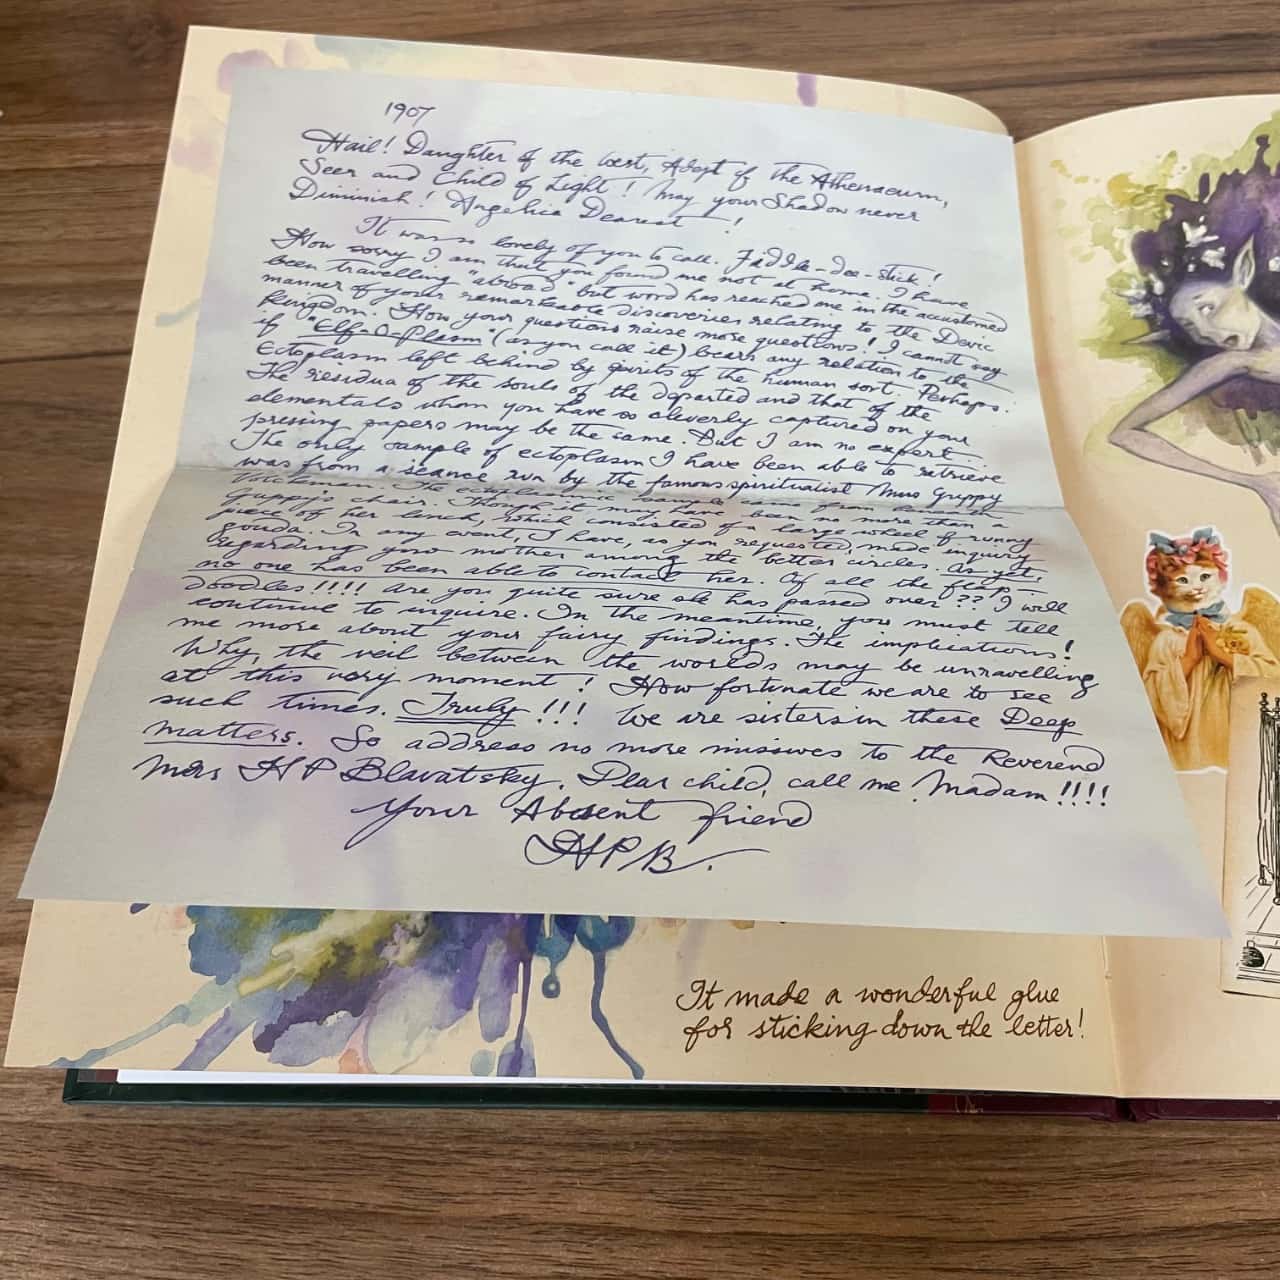 1907
Hail! Daughter of the West, Adept of the Athenaeum,
Seer and Child of Light! May your Shadow never
Diminish! Angelica Dearest!
It was so lovely of you to call. Faddle-dee-stick!
How sorry I am that you found me not at home. I have
been travelling "abroad" but word has reached me in the accustomed
manner of your remarkable discoveries relating to the Devic
Kingdom. How your questions raise more questions! I cannot say
if "Elf-O-Plasm" (as you call it) bears any relation to the
Ectoplasm left behind by spirits of the human sort. Perhaps.
The residua of the souls of the departed and that of the
elementals whom you have so cleverly captured on your
pressing papers may be the same. But I am no expert.
The only sample of ectoplasm I have been able to retrieve
was from a séance run by the famous spiritualist Mrs Guppy
The ectoplasmic sample came from
Guppy's chair. Though it may have been no more than a
piece of her lunch, which consisted of a large wheel of runny
gouda. In any event, I have, as you requested, made inquiry
regarding your mother among the better circles. As yet,
no one has been able to contact her. Of all the
doodles!!!! Are you quite sure she has passed over?? I will
continue to inquire. In the meantime, you must tell
me more about your fairy findings. The implications!
Why, the veil between the worlds may be unravelling
at this very moment! How fortunate we are to see
such times. Truly!!! We are sisters in these Deep
matters. So address no more missives to the Reverend
Mrs H P Blavatsky. Dear child, call me Madam!!!!
Your Absent friend
HPB.
It made a wonderful glue
for sticking down the letter!